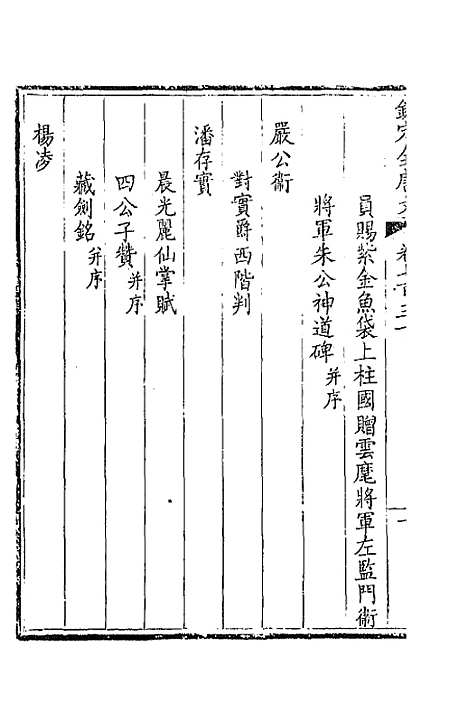 欽定全唐文 卷七百三十 一
員賜紫金魚袋上柱國贈雲麾將軍左監門衛
將軍朱公神道碑 并序
嚴公衡
對賓爵西階判
潘存實
晨光麗仙掌賦
四公子贊 并序
藏劍銘 并序
楊凌